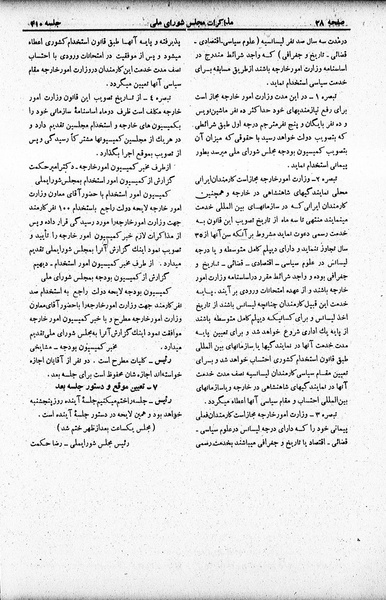 صفحه ۲۸
مذاکرات مجلس شورای ملی
جلسه ۴۱۰
درمدت سه سال صد نفر لیسانسیه (علوم سیاسی-اقتصادی -
قضائی - تاریخ و جغرافی) که واجد شرائط مندرج در
اساسنامه وزارت امور خارجه باشند ازطریق مسابقه برای
خدمت پیمانی استخدام نماید.
تبصره ۱ - در این مدت وزارت امور خارجه مجاز است
برای رفع نیازمندیهای خود حداکثر ده نفر ماشین‌نویس
و ده نفر بایگان و پنج نفر مترجم درجه اول طبق شرائطی
که بتصویب دولت خواهد رسید با حقوقی که میزان آن
بتصویب کمیسیون بودجه مجلس شورای ملی میرسد بطور
پیمانی استخدام نماید.
تبصره ۲- وزارت امورخارجه مجازاست کارمندان ایرانی
محلی نمایندگیهای شاهنشاهی در خارجه و همچنین
کارمندان ایرانی که در سازمانهای بین المللی خدمت
مینمایند منتهی تا سه ماه از تاریخ تصویب این قانون به
خدمت رسمی دعوت نماید مشروط بر آنکه سن آنها از ۳۵
سال تجاوز ننماید و دارای دیپلم کامل متوسطه و یا درجه
لیسانس در علوم سیاسی - اقتصادی - قضائی - تاریخ و
جغرافی بوده و واجد شرائط مقرر در اساسنامه وزارت امور
خارجه باشند و از عهده امتحانات ورودی بر آیند. پایه
خدمت این قبیل کارمندان چنانچه لیسانس باشند از تاریخ
اخذ لیسانس و برای لیسانس که دیپلم کامل متوسطه باشند
از پایه یک اداری شروع خواهد شد و برای تعیین پایه
مدت خدمت آنها در نمایندگی ها یا سازمانهای بین المللی
طبق قانون استخدام کشوری احتساب خواهد شد. برای
تعیین مقام سیاسی کارمندان لیسانسیه نصف مدت خدمت
آنها در نمایندگیهای شاهنشاهی در خارجه ویاسازمانهای
بین المللی احتساب و مقام سیاسی آنها اعطاء میگردد.
تبصره ۳ - وزارت امورخارجه مجازاست کارمندان فعلی
پیمانی خود را که دارای درجه لیسانس درعلوم سیاسی -
قضائی - اقتصاد یا تاریخ و جغرافی میباشند بخدمت رسمی
پذیرفته و پایه آنها طبق قانون استخدام کشوری اعطاء
میشود و پس از موفقیت در امتحانات ورودی با احتساب
نصف مدت خدمت این کارمندان دروزارت امورخارجه مقام
سیاسی آنها تعیین میگردد.
تبصره ۴ - از تاریخ تصویب این قانون وزارت امور
خارجه مکلف است ظرف دوماه اساسنامه سازمانی خود را
بکمیسیون های خارجه و استخدام مجلسین تقدیم دارد و
در هر یک از مجلسین کمیسیونها مشترکاً رسیدگی و پس
از تصویب بموقع اجرا بگذارد.
ازطرف مخبر کمیسیون امور خارجه - دکتر امیر حکمت
گزارش از کمیسیون امور استخدام مجلس شورایملی
کمیسیون امور استخدام با حضور آقای معاون وزارت
امور خارجه لایحه دولت راجع باستخدام ۱۰۰ نفر کارمند
جهت وزارت امورخارجه را مورد رسیدگی قرار داده و پس
از مذاکرات لازم خبر کمیسیون امور خارجه را تأیید و
تصویب نمود اینک گزارش آنرا بمجلس شورایملی تقدیم
میدارد. از طرف مخبر کمیسیون استخدام - دیهیم
گزارش از کمیسیون بودجه بمجلس شورای ملی
کمیسیون بودجه لایحه دولت راجع به استخدام صد
نفر کارمند جهت وزارت امورخارجه را باحضور آقای معاون
وزارت امورخارجه مطرح و با خبر کمیسیون امور خارجه
موافقت نمود اینک گزارش آنرا به مجلس شورای ملی تقدیم
میدارد. مخبر کمیسیون بودجه - مشایخی
رئیس - کلیات مطرح است. دو نفر از آقایان اجازه
خواسته‌اند اجازه‌شان محفوظ است برای جلسه بعد.
۷ - تعیین موقع و دستور جلسه بعد
رئیس - جلسه راختم میکنیم جلسه آینده روزپنجشنبه
خواهد بود و همین لایحه در دستور جلسه آینده است.
(مجلس یکساعت بعدازظهر ختم شد)
رئیس مجلس شورایملی - رضا حکمت